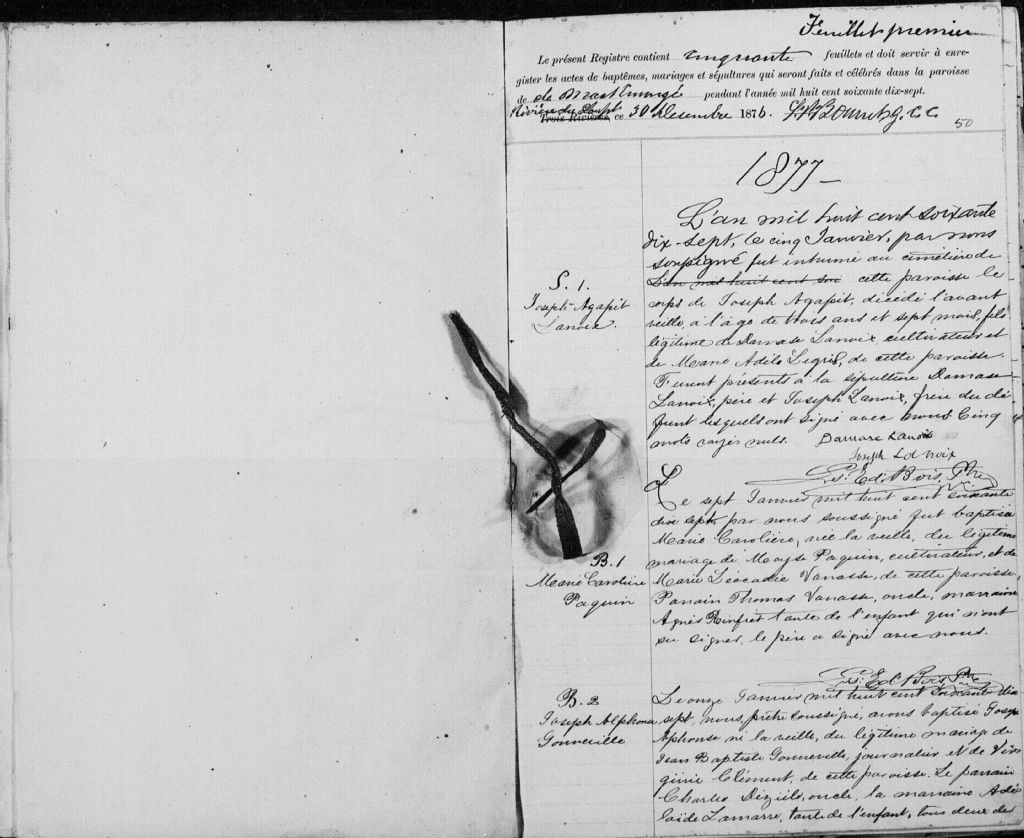 Feuillet premier
Le présent Registre contient cinquante feuillets et doit servir à enre-
gister les actes de baptêmes, mariages et sépultures qui seront faits et célébrés dans la paroisse
de de Maskinongé pendant l'année mil huit cent soixante dix-sept.
Rivière du Loup
Trois Rivières, ce 30 Decembre 1876.
50
1877 —
L'an mil huit cent soixante
dix-sept, le cinq Janvier, par nous
soussigné fut inhumé au cimétière de
L'an mil huit cent soi cette paroisse le
corps de Joseph Agapit, décédé l'avant
veille, à l'âge de trois ans et sept mois, fils
légitime de Damase Lanoix cultivateur et
de Marie Adile Legris, de cette paroisse.
Furent présents à la sépulture Damase
Lanoix, père et Joseph Lanoix, frère du dé
funt lesquels ont signé avec nous Cinq
mots rayés nuls. Damase Lanoix
Joseph Lanoix
Ed. Bois, Ptre
S. 1.
Joseph-Agapit
Lanoix.
Le sept Janvier mil huit cent soixante
dix sept par nous soussigné fut baptisée
Marie Caroline, née la veille, du légitime
mariage de Moyse Paquin, cultivateur, et de
Marie Léocadie Vanasse, de cette paroisse,
Parrain Thomas Vanasse, oncle, marraine
Agnès Rinfret tante de l'enfant qui n'ont
su signer, le père a signé avec nous.
Ed. Bois, Ptre
B. 1
Marie Caroline
Paquin
B. 2
Joseph Alphonse
Gonneville
Le onze Janvier mil huit cent soixante dix
sept, nous, prêtre soussigné, avons baptisé Joseph
Alphonse né la veille, du légitime mariage de
Jean Baptiste Gonneville, journalier et de Vir
ginie Clément, de cette paroisse. Le parrain
Charles Déziel, oncle, la marraine Adé
laïde Lamarre, tante de l'enfant, tous deux de